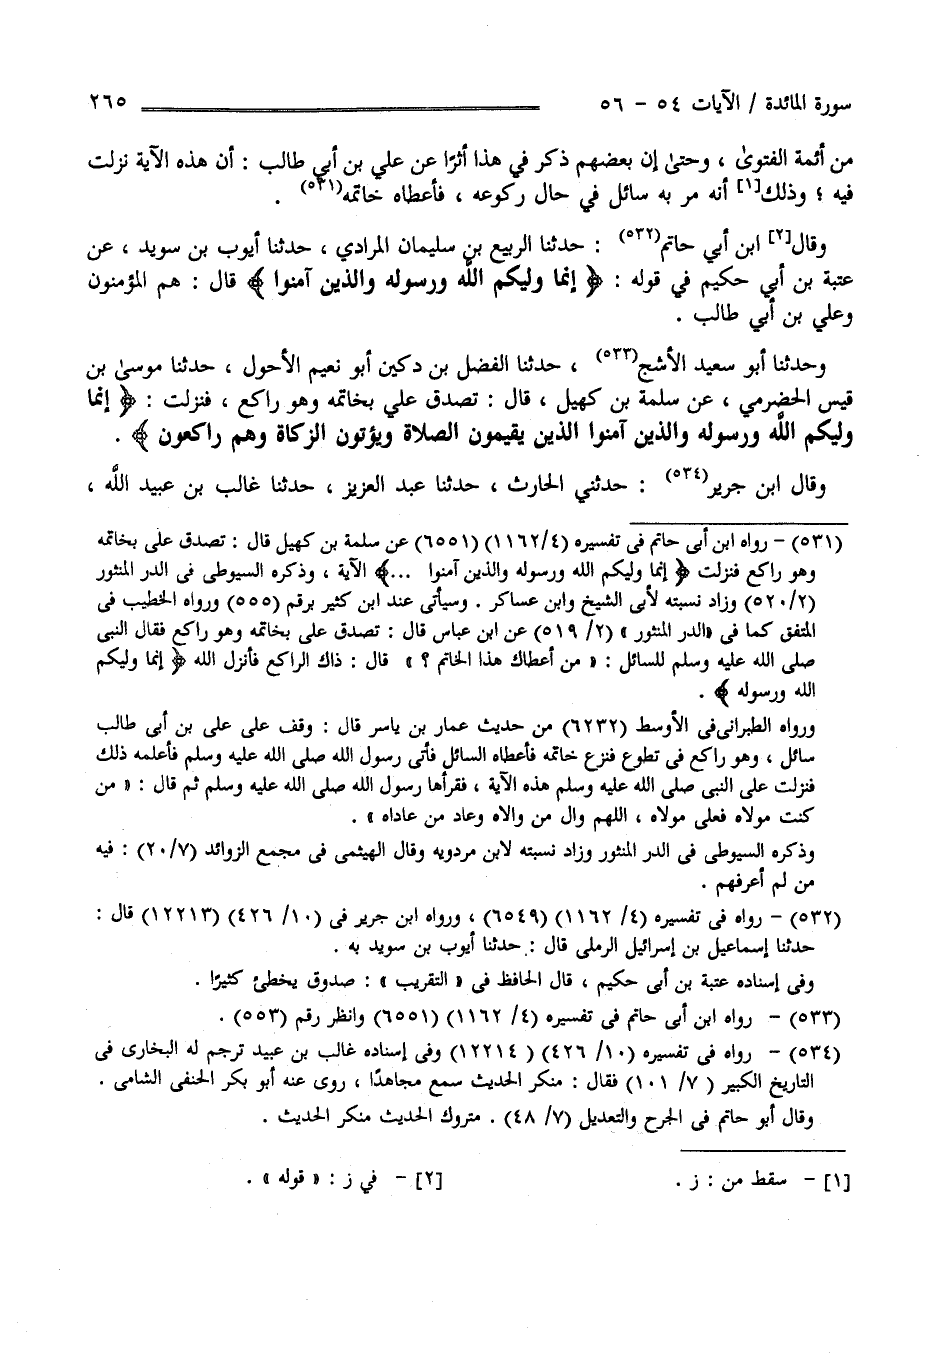 سورة المائدة / الآيات ٥٤ - ٥٦ ٢٦٥
من أئمة الفتوىٰ ، وحتىٰ إن بعضهم ذكر في هذا أثرًا عن علي بن أبي طالب : أن هذه الآية نزلت
فيه ؛ وذلك[١] أنه مر به سائل في حال ركوعه ، فأعطاه خاتمه(٥٣١) .
وقال[٢] ابن أبي حاتم(٥٣٢) : حدثنا الربيع بن سليمان المرادي ، حدثنا أيوب بن سويد ، عن
عتبة بن أبي حكيم في قوله : ﴿ إنما وليكم اللَّه ورسوله والذين آمنوا ﴾ قال : هم المؤمنون
وعلي بن أبي طالب .
وحدثنا أبو سعيد الأشج(٥٣٣) ، حدثنا الفضل بن دكين أبو نعيم الأحول ، حدثنا موسىٰ بن
قيس الحضرمي ، عن سلمة بن كهيل ، قال : تصدق علي بخاتمه وهو راكع ، فنزلت : ﴿ إنما
وليكم اللَّه ورسوله والذين آمنوا الذين يقيمون الصلاة ويؤتون الزكاة وهم راكعون ﴾ .
وقال ابن جرير(٥٣٤) : حدثني الحارث ، حدثنا عبد العزيز ، حدثنا غالب بن عبيد اللَّه ،
(٥٣١) - رواه ابن أبى حاتم فى تفسيره (١١٦٢/٤) (٦٥٥١) عن سلمة بن كهيل قال : تصدق على بخاتمه
وهو راكع فنزلت ﴿ إنما وليكم الله ورسوله والذين آمنوا ...﴾ الآية ، وذكره السيوطى فى الدر المنثور
(٥٢٠/٢) وزاد نسبته لأبى الشيخ وابن عساكر . وسيأتى عند ابن كثير برقم (٥٥٥) ورواه الخطيب فى
المتفق كما فى «الدر المنثور » (٢/ ٥١٩) عن ابن عباس قال : تصدق على بخاتمه وهو راكع فقال النبى
صلى الله عليه وسلم للسائل : « من أعطاك هذا الخاتم ؟ » قال : ذاك الراكع فأنزل الله ﴿ إنما وليكم
الله ورسوله ﴾ .
ورواه الطبرانى فى الأوسط (٦٢٣٢) من حديث عمار بن ياسر قال : وقف على على بن أبى طالب
سائل ، وهو راكع فى تطوع فنزع خاتمه فأعطاه السائل فأتى رسول الله صلى الله عليه وسلم فأعلمه ذلك
فنزلت على النبى صلى الله عليه وسلم هذه الآية ، فقرأها رسول الله صلى الله عليه وسلم ثم قال : « من
كنت مولاه فعلى مولاه ، اللهم وال من والاه وعاد من عاداه » .
وذكره السيوطى فى الدر المنثور وزاد نسبته لابن مردويه وقال الهيثمى فى مجمع الزوائد (٢٠/٧) : فيه
من لم أعرفهم .
(٥٣٢) - رواه فى تفسيره (٤/ ١١٦٢) (٦٥٤٩) ، ورواه ابن جرير فى (١٠/ ٤٢٦) (١٢٢١٣) قال :
حدثنا إسماعيل بن إسرائيل الرملى قال : حدثنا أيوب بن سويد به .
وفى إسناده عتبة بن أبى حكيم ، قال الحافظ فى « التقريب » : صدوق يخطئ كثيرًا .
(٥٣٣) - رواه ابن أبى حاتم فى تفسيره (٤/ ١١٦٢) (٦٥٥١) وانظر رقم (٥٥٣) .
(٥٣٤) - رواه فى تفسيره (١٠/ ٤٢٦) ( ١٢٢١٤) وفى إسناده غالب بن عبيد ترجم له البخارى فى
التاريخ الكبير ( ٧/ ١٠١) فقال : منكر الحديث سمع مجاهدًا ، روى عنه أبو بكر الحنفى الشامى .
وقال أبو حاتم فى الجرح والتعديل (٧/ ٤٨) . متروك الحديث منكر الحديث .
[١] - سقط من : ز . [٢] - في ز : « قوله » .